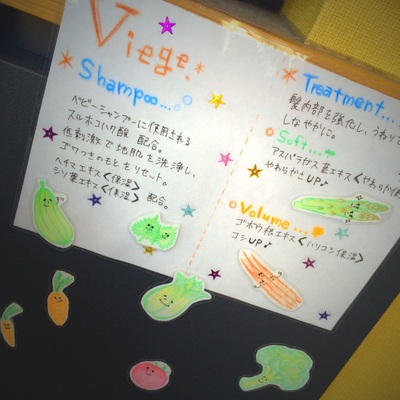 Viege.
Shampoo...
ベビーシャンプーに使用される
スルホコハク酸 配合。
低刺激で地肌を洗浄し、
ゴワつきのもとをリセット。
ヘチマエキス<保湿>
シソ葉エキス<保湿> 配合。
Treatment...
髪内部を強化し、うねりを
しなやかに。
Soft...
アスパラガス茎エキス<やわらか
やわらかさUP♪
Volume...
ゴボウ根エキス<ハリコシ保湿>
コシUP♪